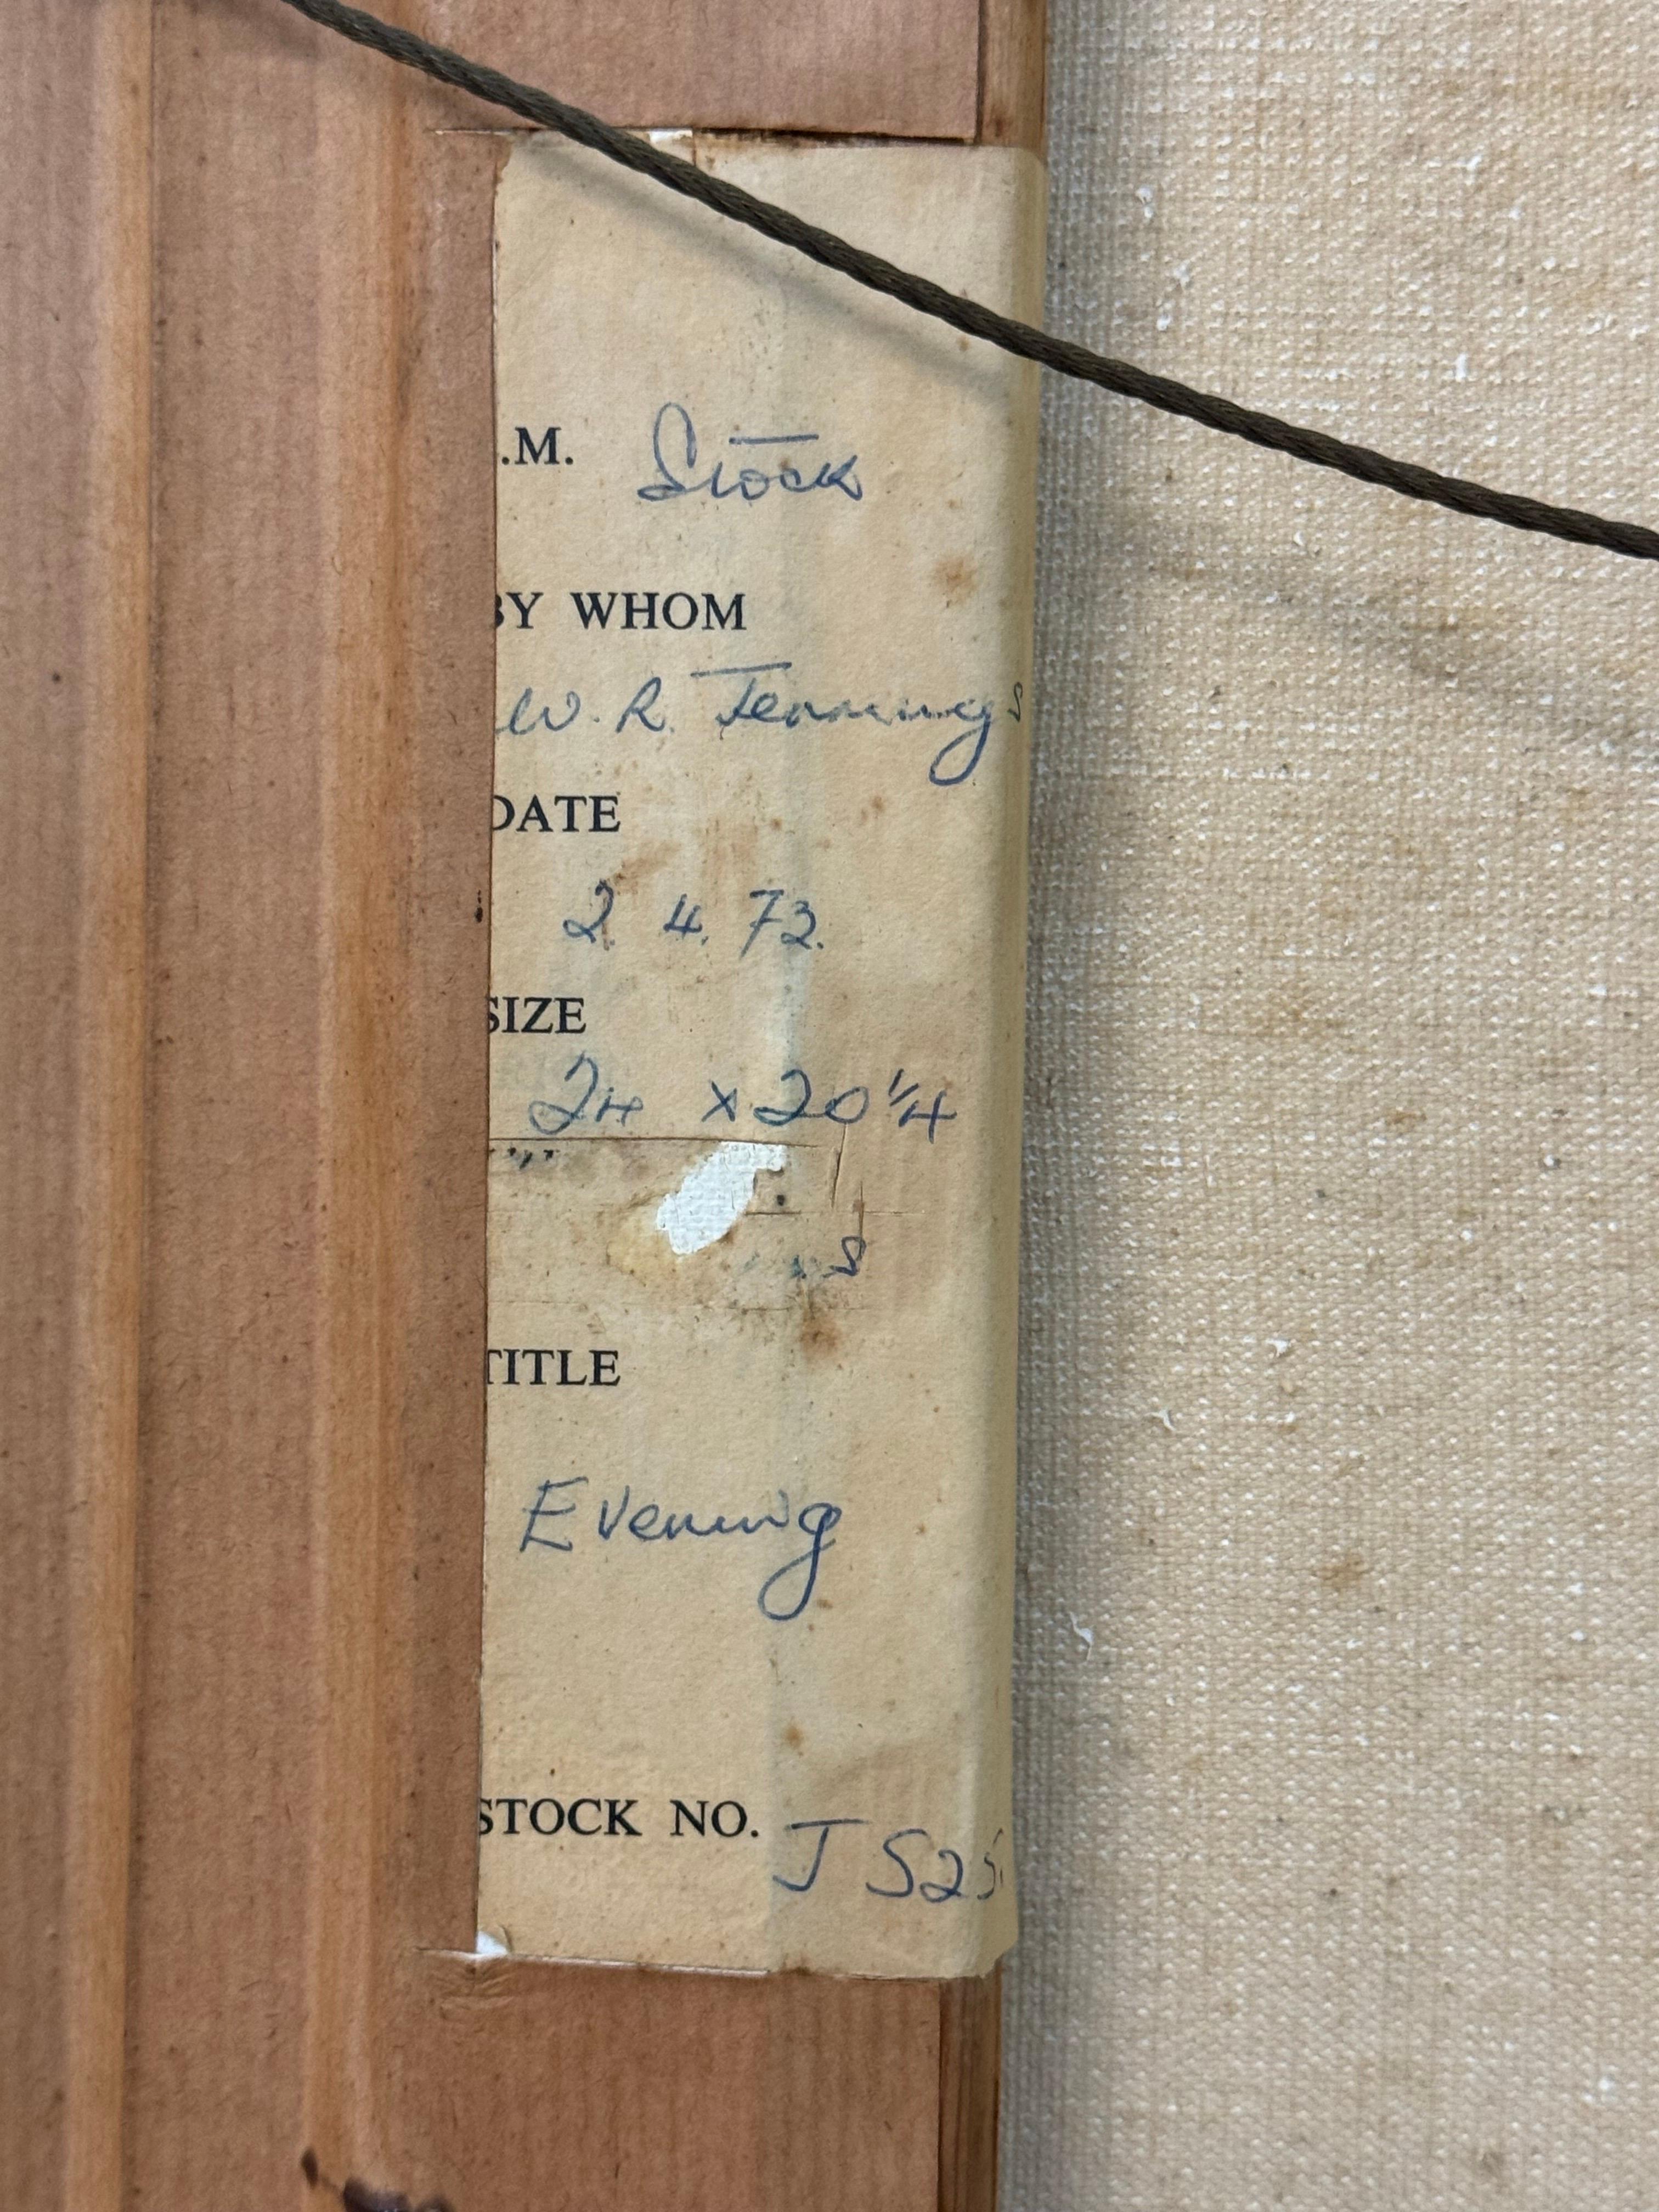 .M. Stock
BY WHOM
W. R. Jennings
DATE
2. 4. 73.
SIZE
24 x 20 1/4
s
TITLE
Evening
STOCK NO. J S25